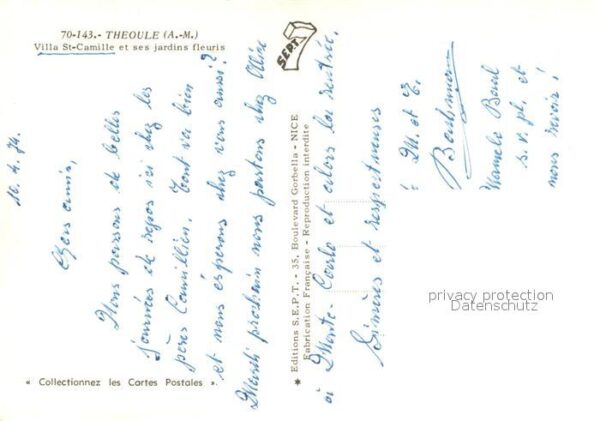 70-143.- THEOULE (A.-M.)
Villa St-Camille et ses jardins fleuris
SEPT
10. 4. 74.
Chers amis,
Nous passons de belles
journées de repos ici chez les
pères Camilliens. Tout va bien
et nous espérons chez vous aussi?
Mardi prochain nous partons chez Alice
à Monte-Carlo et alors la rentrée.
Sincères et respectueuses
M. et E.
Mamelo Baul
s. v. pl. et
nous revoir!
* Editions S.E.P.T. - 35, Boulevard Gorbella - NICE
Fabrication Française - Reproduction interdite
« Collectionnez les Cartes Postales ».
privacy protection
Datenschutz